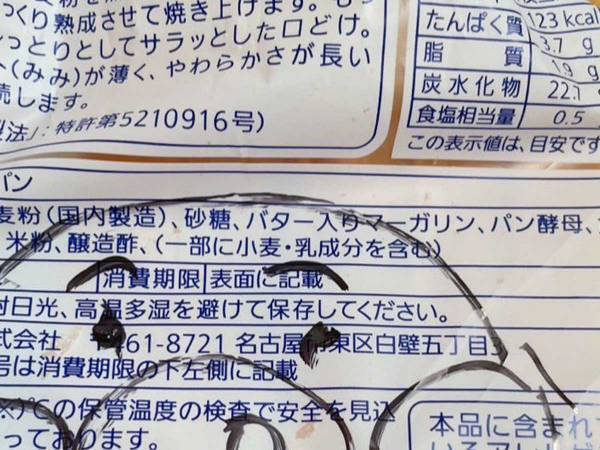 っくり熟成させて焼き上げます。
っとりとしてサラッとした口どけ。
(みみ)が薄く、やわらかさが長い
続します。
製法」:特許第5210916号)
123 kcal
たんぱく質 3.7 g
脂質 1.9 g
炭水化物 22.1
食塩相当量 0.5
この表示値は、目安です
パン
麦粉(国内製造)、砂糖、バター入りマーガリン、パン酵母、
米粉、醸造酢、(一部に小麦・乳成分を含む)
消費期限 表面に記載
射日光、高温多湿を避けて保存してください。
式会社 〒461-8721 名古屋市東区白壁五丁目3
号は消費期限の下左側に記載
※)℃の保管温度の検査で安全を見込
っております。
本品に含まれ
いるアレルゲ